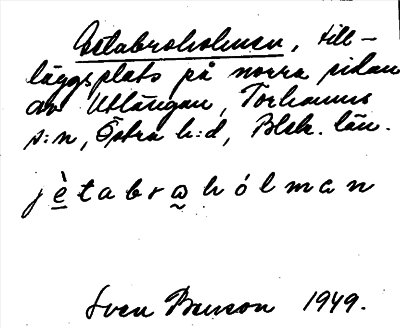 Getabroholmen, till-
läggsplats på norra sidan
av Utlängan, Torhamns
s:n, Östra h:d, Blek. län.
jètabrạhólman
Sven Benson 1949.